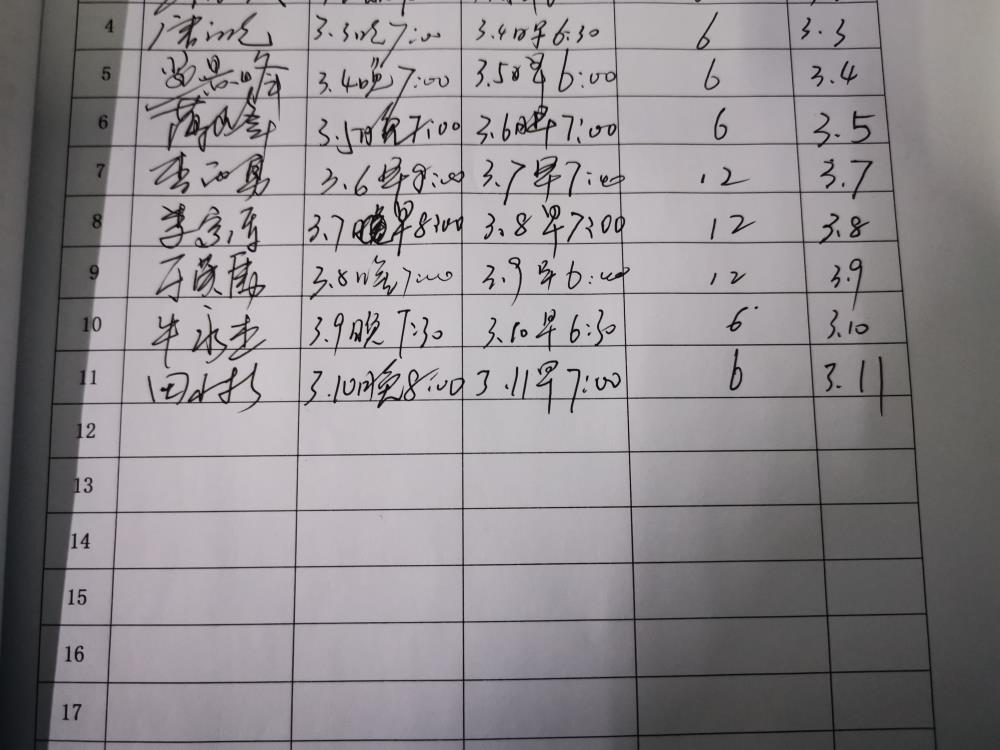 4 3.3晚7:00 3.4早6:30 6 3.3
5 3.4晚7:00 3.5早6:00 6 3.4
6 3.5晚7:00 3.6早7:00 6 3.5
7 3.6早8:00 3.7早7:00 12 3.7
8 3.7早8:00 3.8早7:00 12 3.8
9 3.8晚7:00 3.9早6:00 12 3.9
10 牛永杰 3.9晚7:30 3.10早6:30 6 3.10
11 3.10晚8:00 3.11早7:00 6 3.11
12
13
14
15
16
17